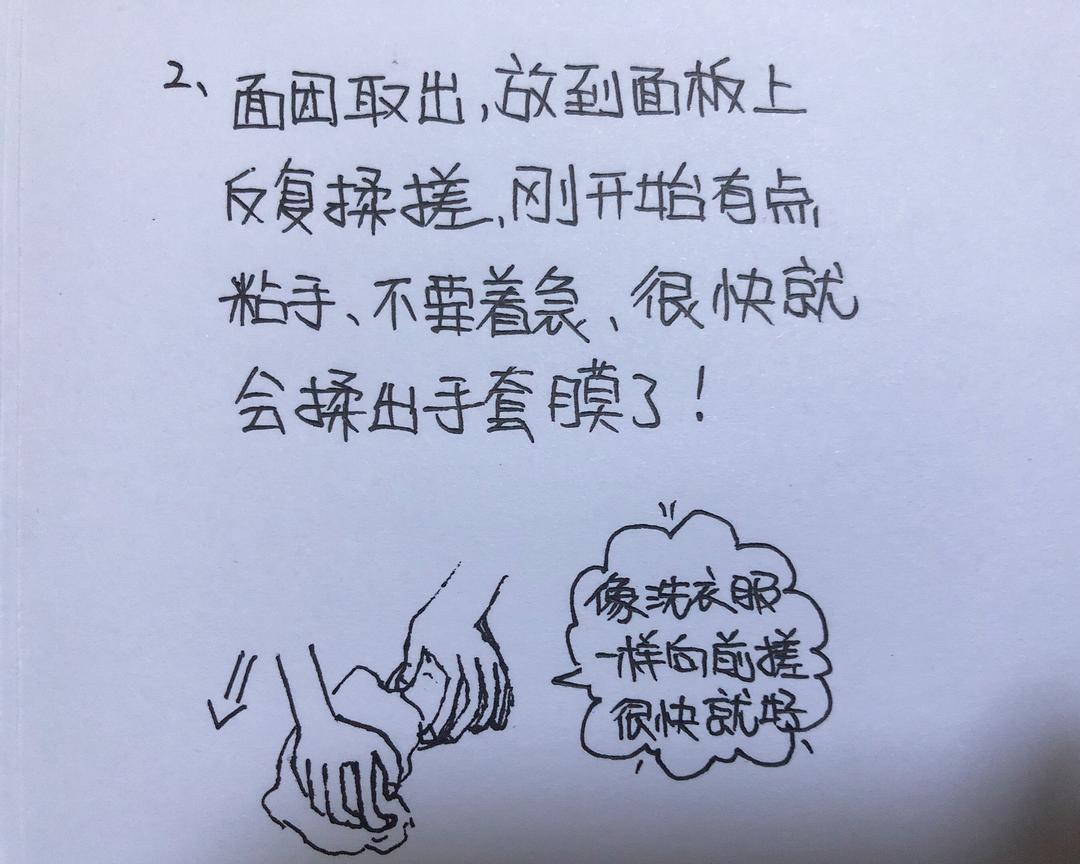 2、面团取出,放到面板上
反复揉搓、刚开始有点
粘手、不要着急、很快就
会揉出手套膜了!
像洗衣服
一样向前搓
很快就好